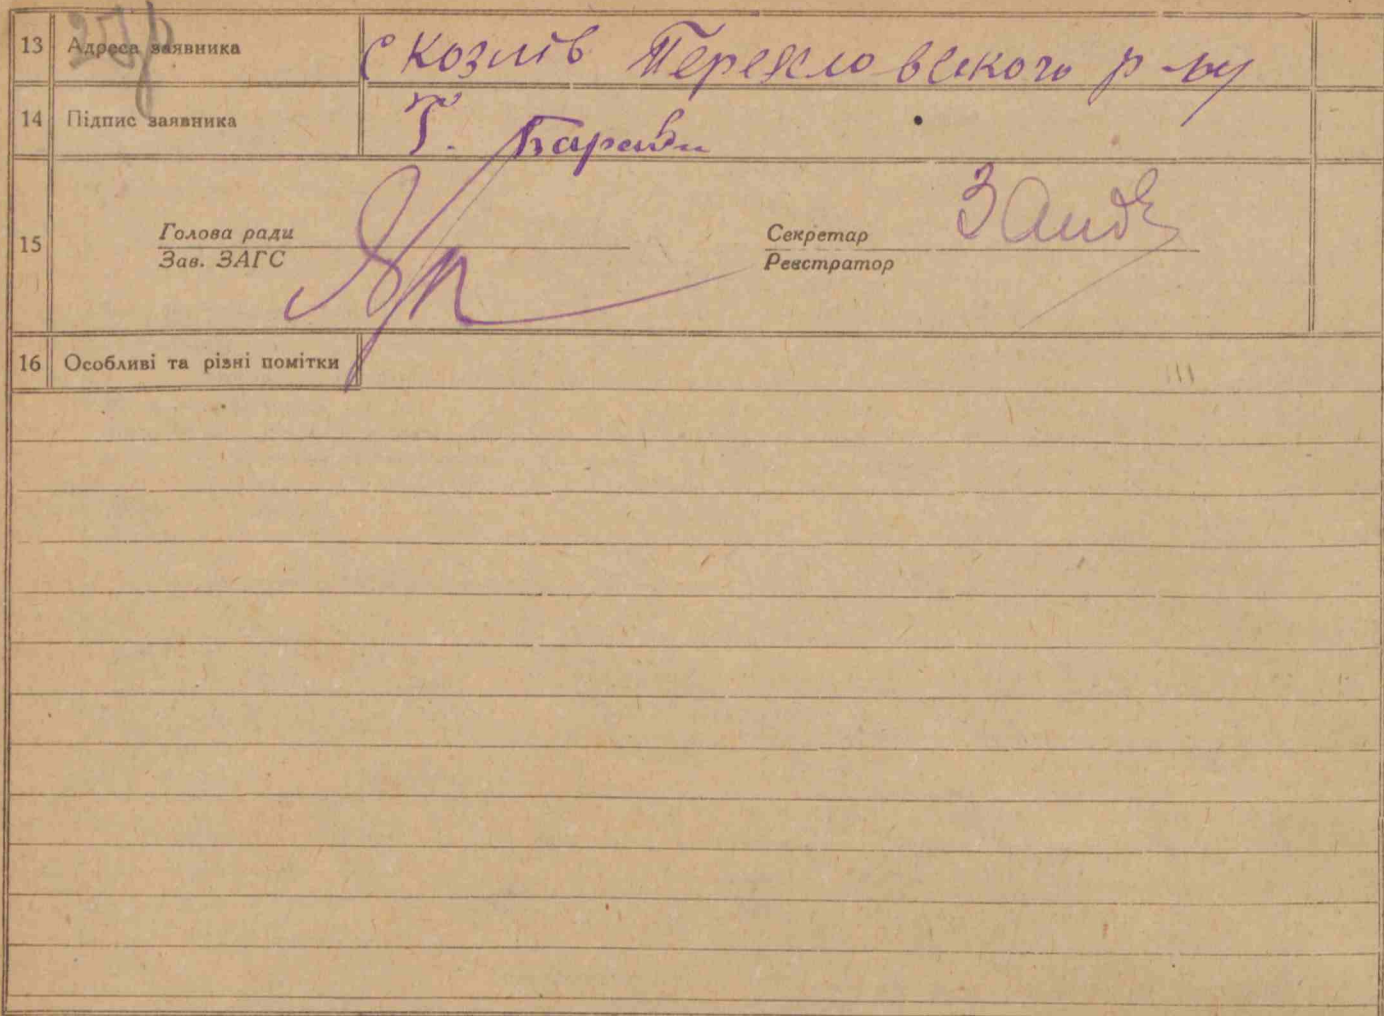 13 Адреса заявника с Козлів Переяславського р-ну
14 Підпис заявника Т.
15 Голова ради Секретар
Зав. ЗАГС Реєстратор
16 Особливі та різні помітки